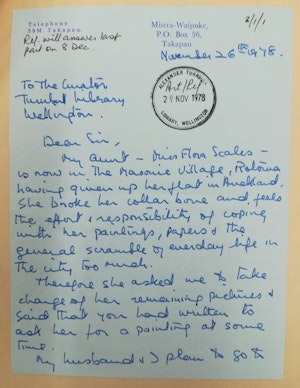 2/1/1
Telephone
58M Takapau.
Ref. will answer last
part on 8 Dec.
Mistra-Waipuke,
P.O. Box 56,
Takapau
November 26th 1978.
To the Curator
Turnbull Library
Wellington.
ALEXANDER TURNBULL
Art/Ref
29 NOV 1978
LIBRARY, WELLINGTON
Dear Sir,
My aunt - Miss Flora Scales -
is now in the Masonic Village, Rotorua
having given up her flat in Auckland.
She broke her collar bone and feels
the effort & responsibility of coping
with her paintings, papers & the
general scramble of everyday life in
the city too much.
Therefore she asked me to take
charge of her remaining pictures &
said that you had written to
ask her for a painting at some
time.
My husband & I plan to go to